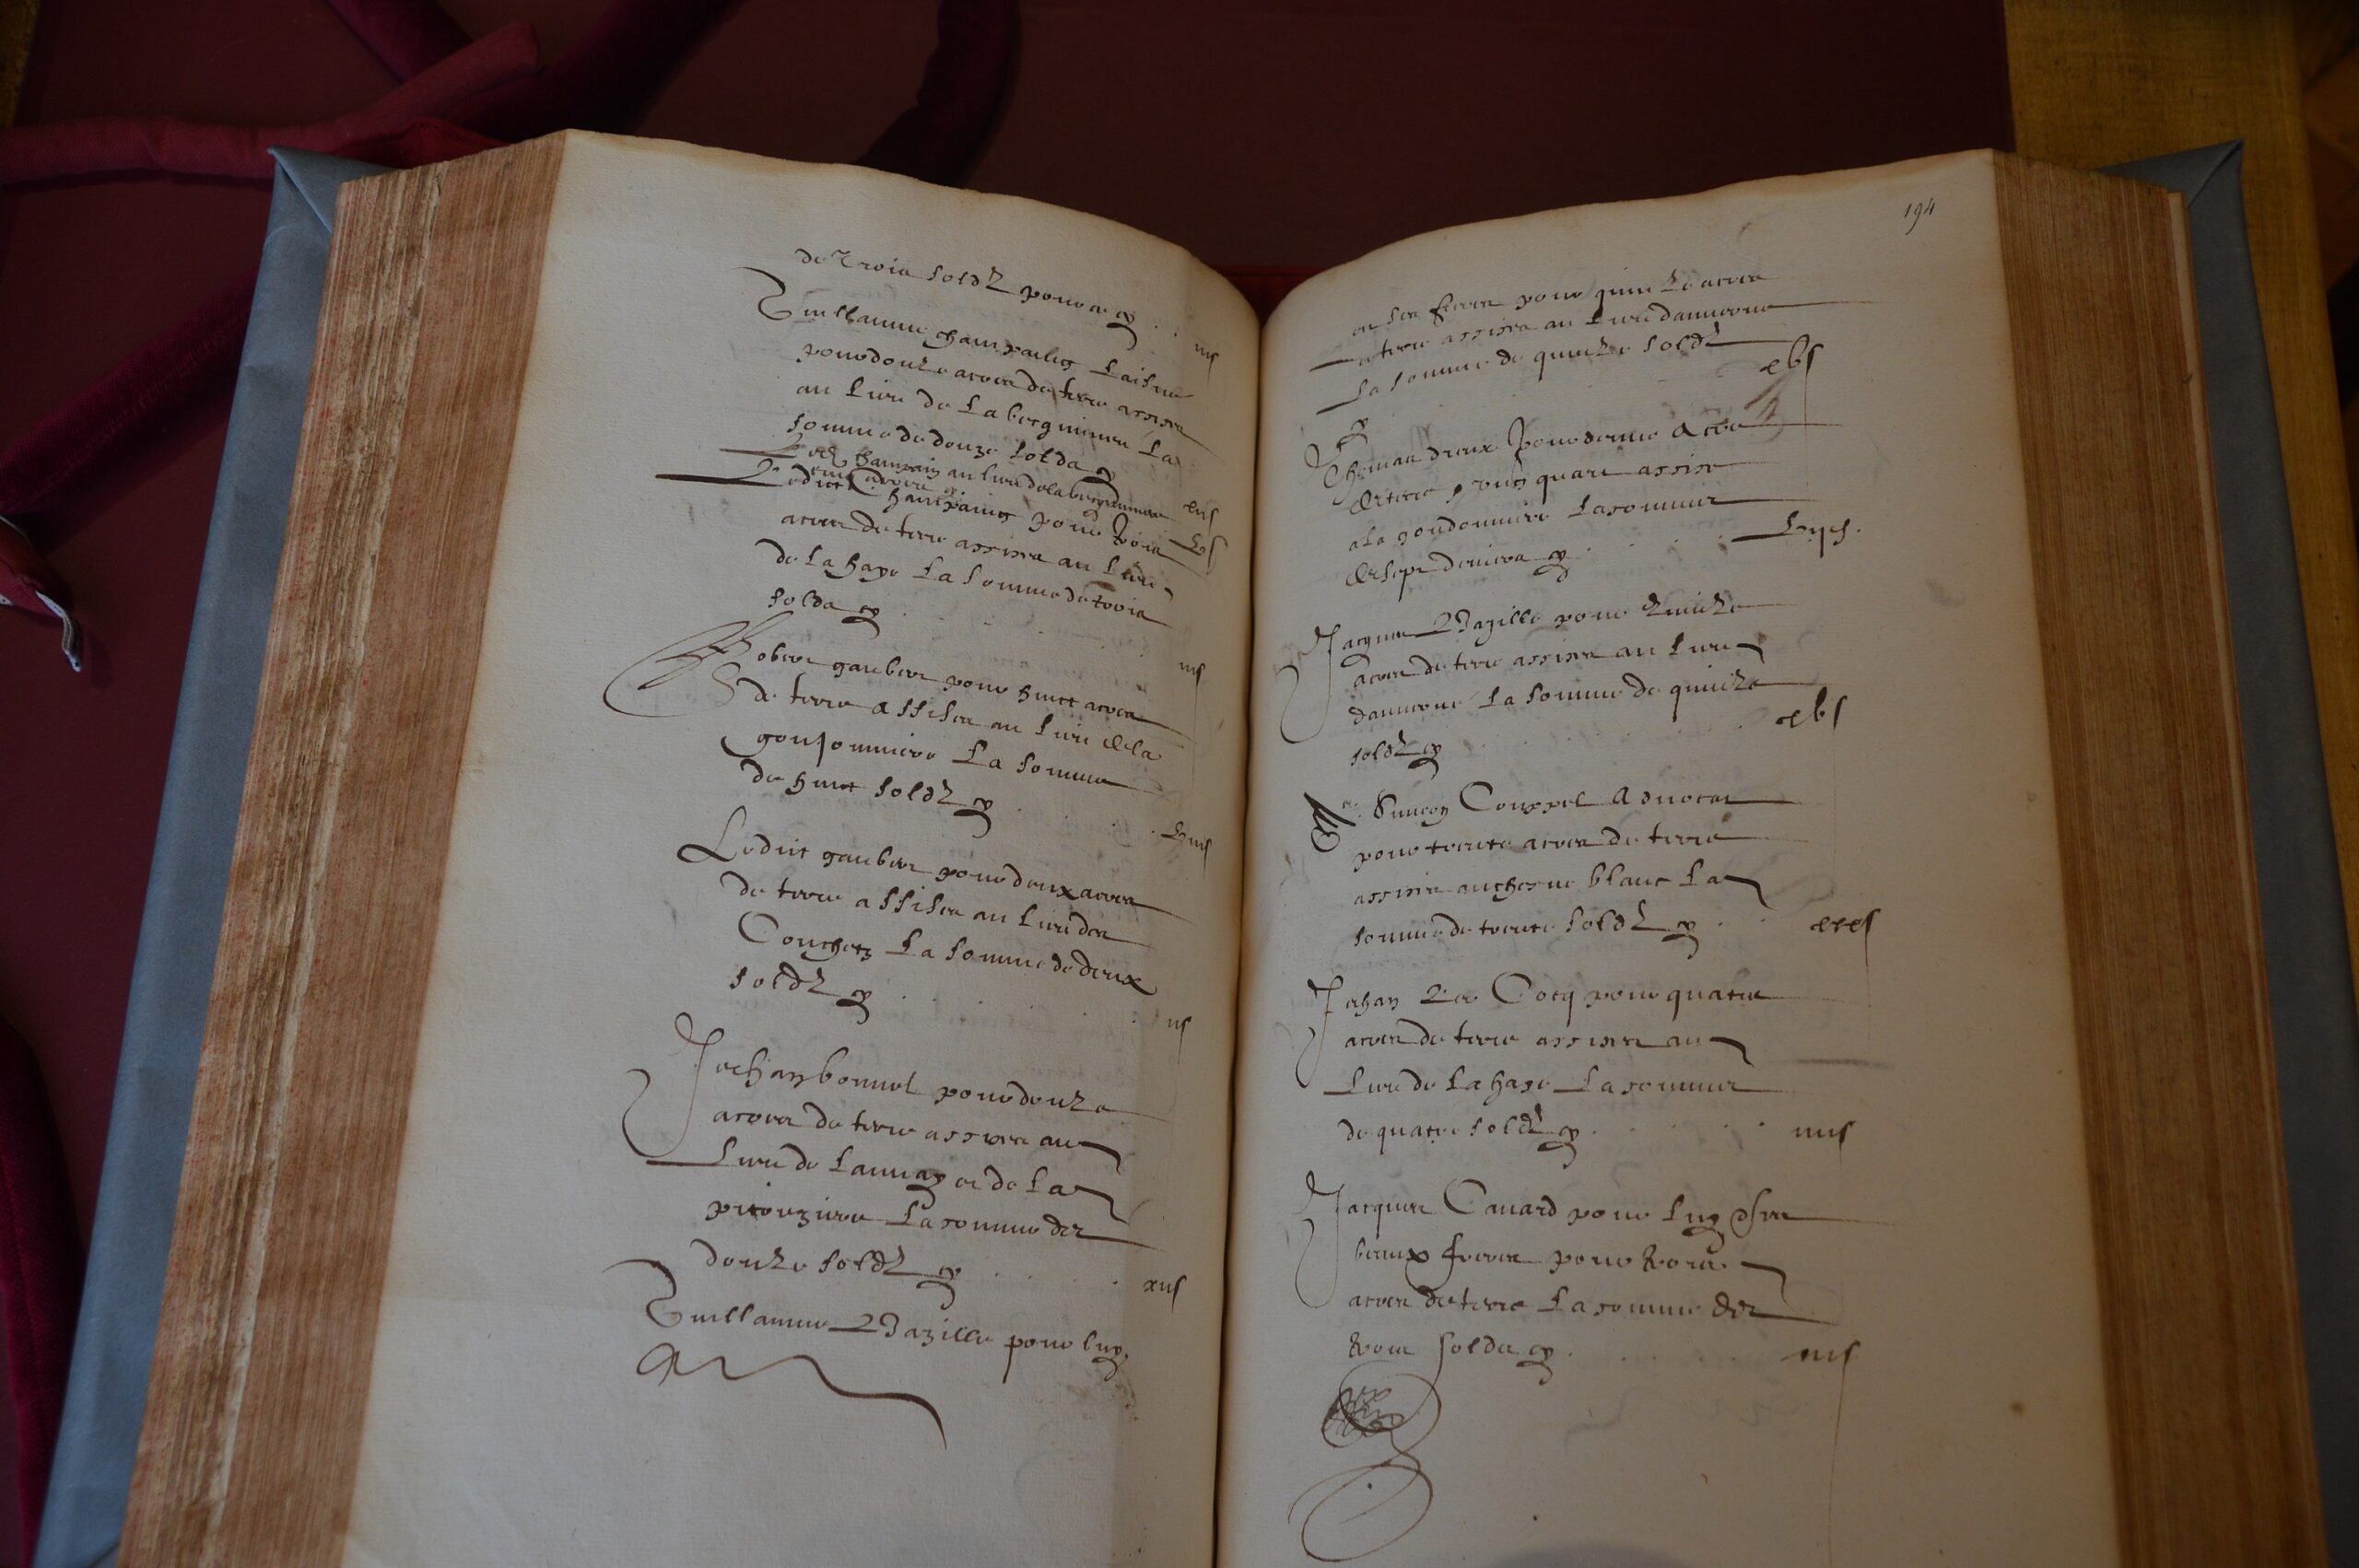 de trois soldz pour ce cy . . iiis
Guillaume champaing Laisne
pour douze acres de terre assises
au Livre de La berginniere La
somme de douze solds cy xiis
champaing au livre de la berginniere
Ledict champaing pour trois
acres de terre assises au Livre
de La haye La somme de trois
solds cy . . . . iiis
Robert gaubert pour huict acres
de terre assises au Livre de la
gousonniere La somme
de huict soldz cy . . . viiis
Ledict gaubert pour deux acres
de terre assises au Livre des
Couchetz La somme de deux
soldz cy . . . . iis
Jehan bonnel pour douze
acres de terre assises au
Livre de Launay et de La
La somme de
douze soldz cy . . . . xiis
Guillaume Bazille pour luy
194
et ses freres pour quinze acres
de terre assises au Livre dauverne
La somme de quinze soldz
cy . . . xvs
Thomas dreux pour demie acre
de terre et ung quart assise
a la goudonniere La somme
de sept deniers cy . . . . viid.
Jacques Bazille pour quinze
acres de terre assises au Livre
dauverne La somme de quinze
soldz cy . . . . xvs
Me Simeon Couppel Advocat
pour trente acres de terre
assises au chesne blanc La
somme de trente soldz cy . . xxxs
Jehan Le Cocq pour quatre
acres de terre assises au
Livre de La haye La somme
de quatre soldz cy . . . . iiiis
Jacques Canard pour Luy et ses
beaux freres pour trois
acres de terre La somme de
trois solds cy . . . . iiis